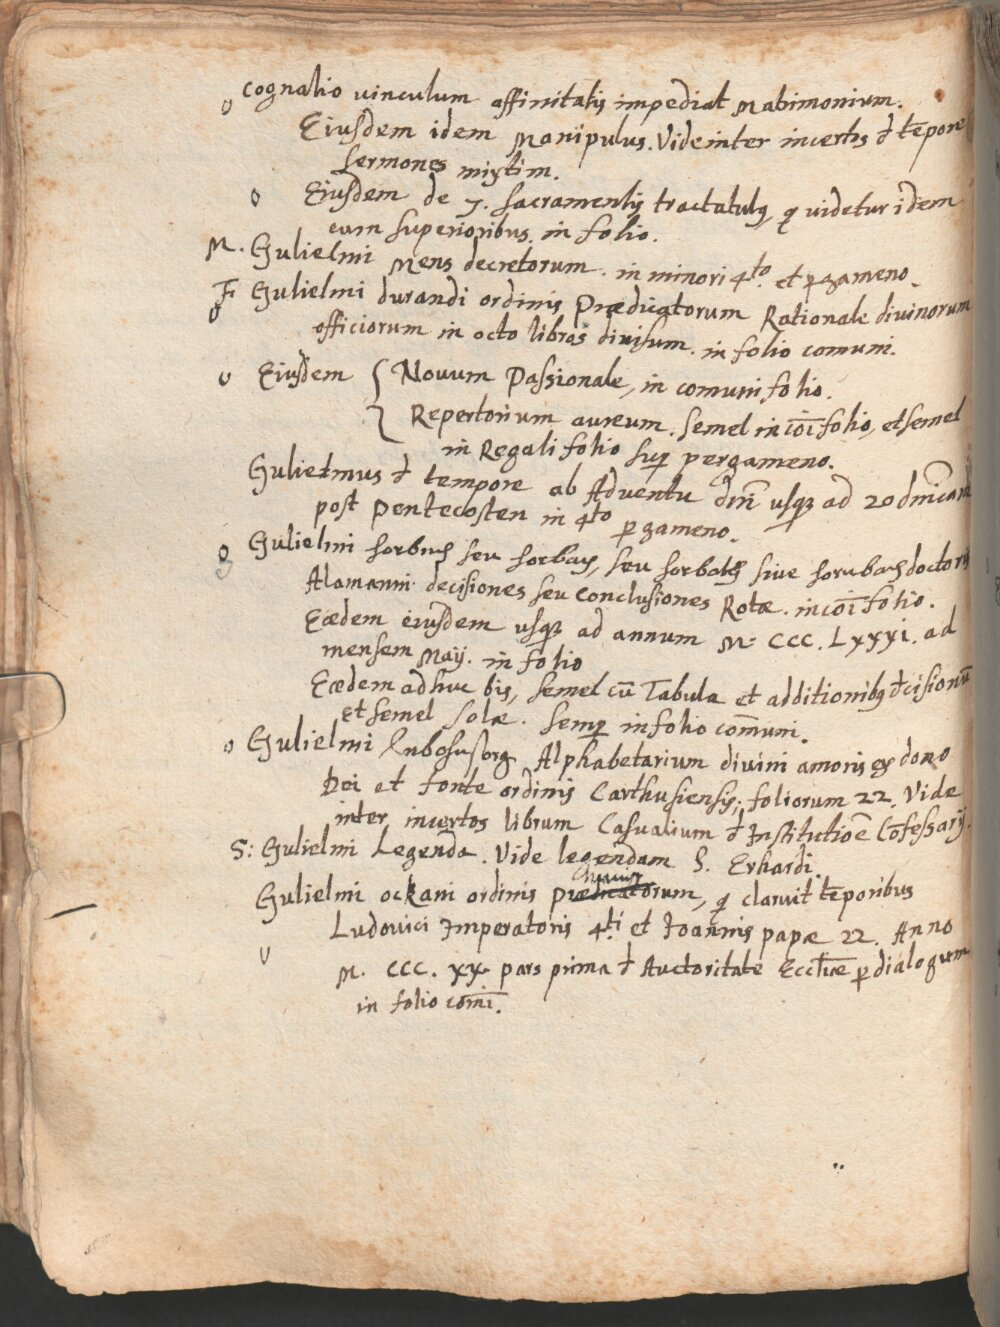 o cognatio vinculum affinitatis impediat Matrimonium.
Eiusdem idem Manipulus. Vide inter incertos đ tēpore
sermones mixtim.
o Eiusdem de 7. sacramentis tractatulq, q videtur idem
cum superioribus. in folio.
M. Gulielmi Mens decretorum. in minori 4to. et pgameno.
F Gulielmi durandi ordinis Prædicatorum Rationale divinorum
o officiorum in octo libros divisum. in folio comuni.
o Eiusdem { Novum Passionale, in comuni folio.
Repertorium aureum. semel in cōi folio, et semel
in Regali folio sup pergameno.
Gulielmus đ tempore ab Adventu dnī usqz ad 20 dnicam
post Pentecosten in 4to pgameno.
Gulielmi horbus seu horbay, seu horboth sive horubay doctoris
Alamanni decisiones seu conclusiones Rotæ. in cōi folio.
Eædem eiusdem usqz ad annum M. CCC. Lxxxi. ad
mensem Maij. in folio
Eædem adhuc bis, semel cū Tabula et additionibq đcisionū
et semel solæ. semp in folio cōmuni.
o Gulielmi Alphabetarium divini amoris ex dono
Dei et fonte ordinis Carthusiensis; foliorum 22. Vide
inter incertos librum Casualium đ Institutiōe Cōfessarij.
S: Gulielmi Legenda. Vide legendam S. Erhardi.
Gulielmi ockani ordinis prædicatorum, q claruit tēporibus
Ludovici Imperatoris 4ti et Joannis papæ 22. Anno
M. CCC. xx. pars prima đ Auctoritate Eccliæ p dialogum
in folio comī.